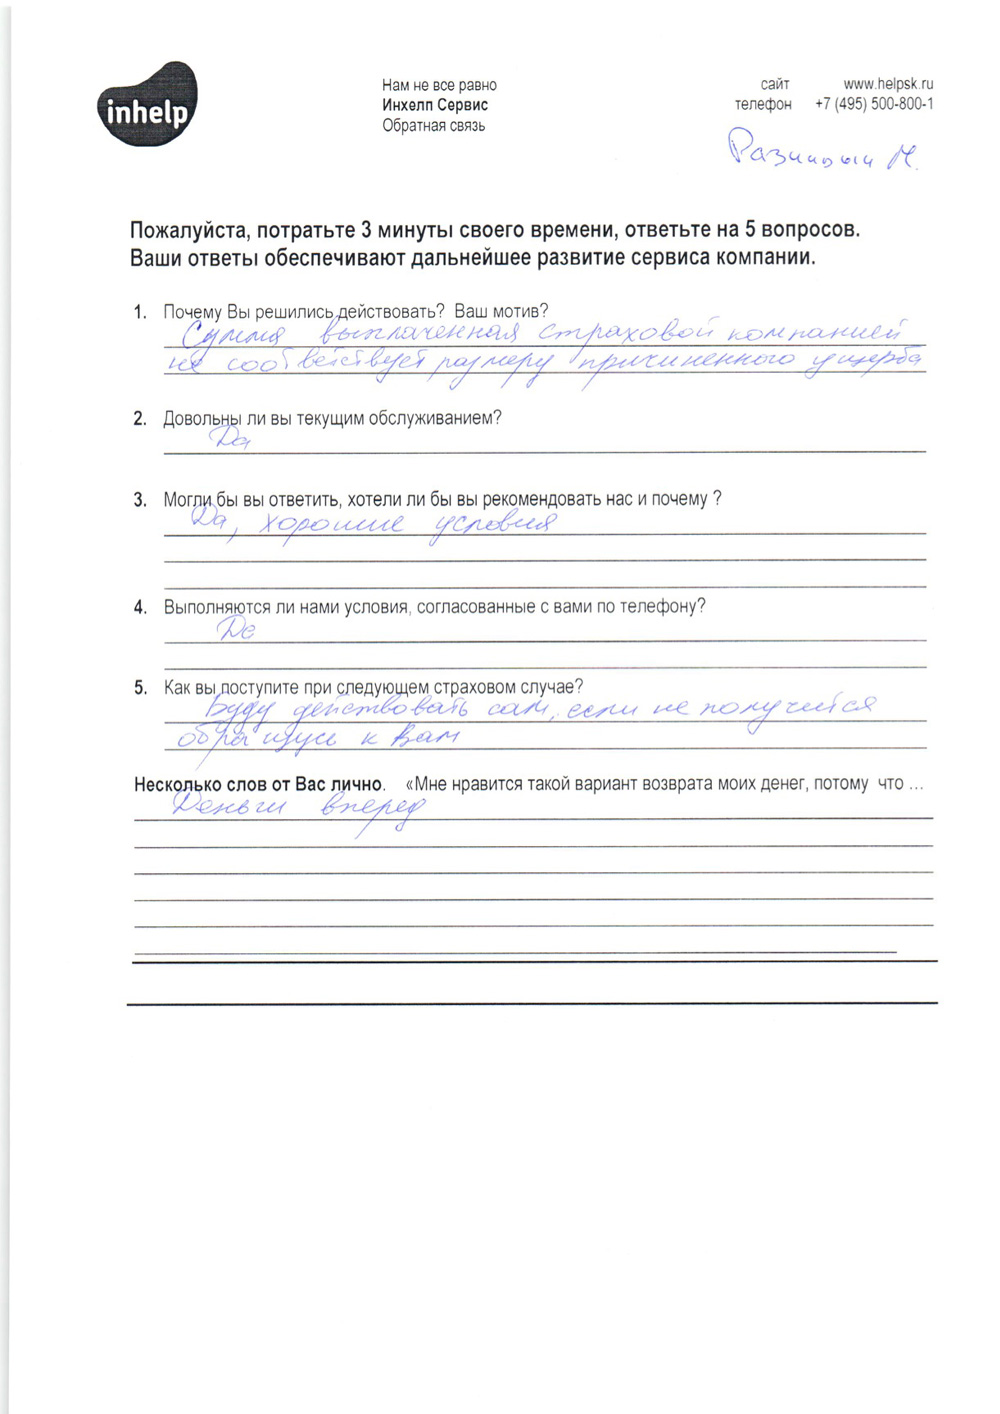 inhelp
Нам не все равно
Инхелп Сервис
Обратная связь
сайт www.helpsk.ru
телефон +7 (495) 500-800-1
М.
Пожалуйста, потратьте 3 минуты своего времени, ответьте на 5 вопросов.
Ваши ответы обеспечивают дальнейшее развитие сервиса компании.
1. Почему Вы решились действовать? Ваш мотив?
Сумма выплаченная страховой компанией
не соответствует размеру причиненного ущерба
2. Довольны ли вы текущим обслуживанием?
Да
3. Могли бы вы ответить, хотели ли бы вы рекомендовать нас и почему ?
Да, хорошие условия
4. Выполняются ли нами условия, согласованные с вами по телефону?
Да
5. Как вы поступите при следующем страховом случае?
Буду действовать сам, если не получится
обращусь к Вам
Несколько слов от Вас лично. «Мне нравится такой вариант возврата моих денег, потому что ...
Деньги вперед